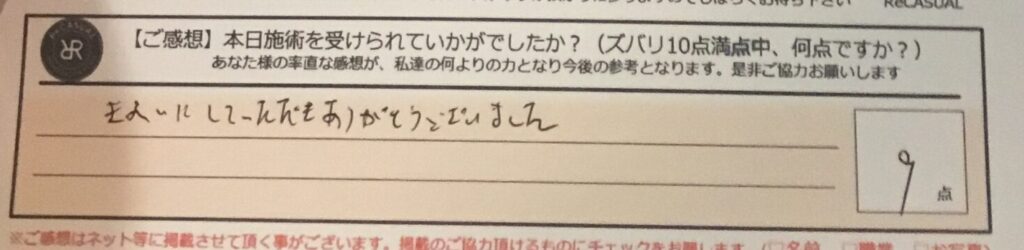 お待ち下さい ReCASUAL
RECASUAL
RR
【ご感想】本日施術を受けられていかがでしたか？（ズバリ10点満点中、何点ですか？）
あなた様の率直な感想が、私達の何よりの力となり今後の参考となります。是非ご協力お願いします
ありがとうございました
9点
※ご感想はネット等に掲載させて頂く事がございます。掲載のご協力頂けるものにチェックをお願いします。（□名前 □職業 □お写真）